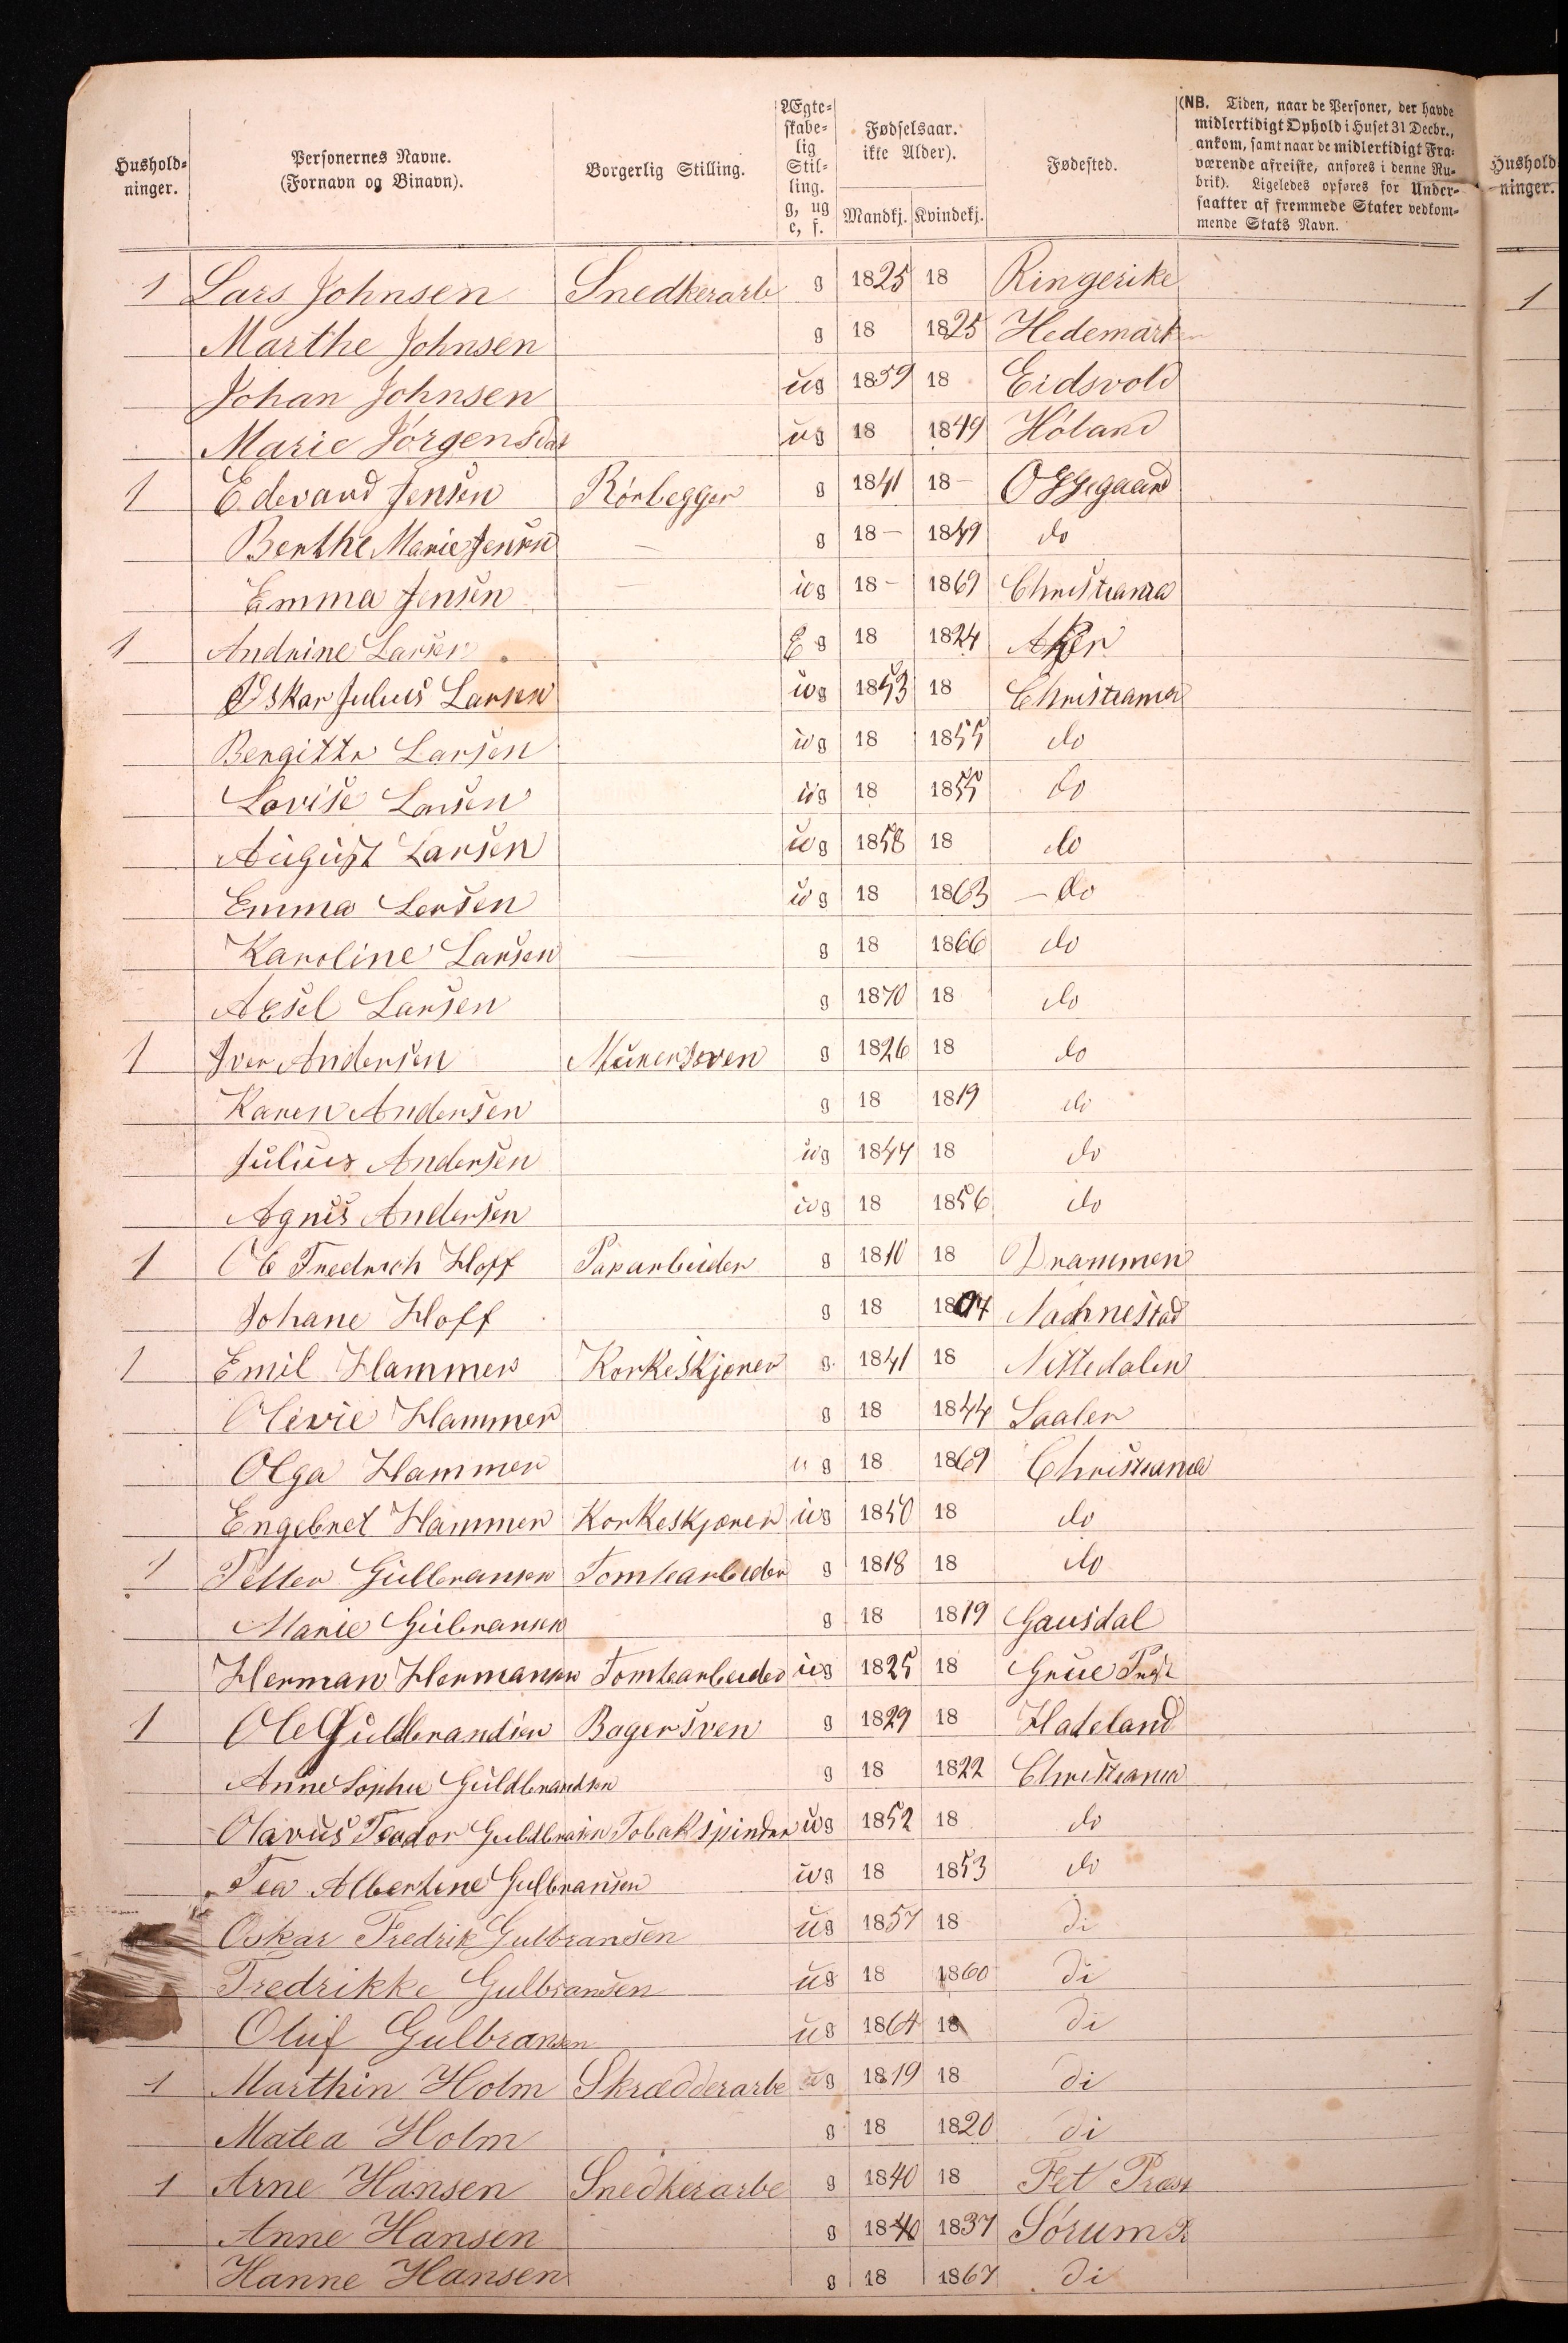 Hushold-
ninger.
Personernes Navne.
(Fornavn og Binavn).
Borgerlig Stilling.
Ægte-
skabe-
lig
Stil-
ling.
g, ug
e, f.
Fødselsaar.
ikke Alder).
Mandkj. Kvindekj.
Fødested.
(NB. Tiden, naar de Personer, der havde
midlertidigt Ophold i Huset 31 Decbr.,
ankom, samt naar de midlertidigt Fra-
værende afreiste, anføres i denne Ru-
brik). Ligeledes opføres for Under-
saatter af fremmede Stater vedkom-
mende Stats Navn.
Hushold-
ninger.
1 Lars Johnsen Snedkerarb g 1825 18 Ringerike
1
Marthe Johnsen g 18 1825 Hedemark
Johan Johnsen ug 1859 18 Eidsvold
Marie Jörgensdat ug 18 1849 Höland
1 Edevard Jensen Rörlegger g 1841 18 – Oppegaard
Berthe Marie Jensen — g 18 – 1849 do
Emma Jensen — ug 18 – 1869 Christiania
1 Andrine Larsen E g 18 1824 Aker
Oskar Julius Larsen ug 1853 18 Christiania
Bergitte Larsen ug 18 1855 do
Lovise Larsen ug 18 1855 do
August Larsen ug 1858 18 do
Emma Larsen ug 18 1863 – do
Karoline Larsen — g 18 1866 do
Axsel Larsen g 1870 18 do
1 Iver Andersen Murersven g 1826 18 do
Karen Andersen g 18 1819 do
Julius Andersen ug 1847 18 do
Agnes Andersen ug 18 1856 do
1 Fredrich Hoff Paparbeider g 1810 18 Drammen
Johane Hoff g 18 1804 Nachnestad
1 Emil Hammer Korkeskjærer g 1841 18 Nittedalen
Olivie Hammer g 18 1844 Saaler
Olga Hammer ug 18 1869 Christiania
Engebret Hammer Korkeskjærer ug 1850 18 do
1 Petter Gulbransen Tomtearbeider g 1818 18 do
Marie Gulbransen g 18 1819 Gausdal
Herman Hermansen Tomtearbeider ug 1825 18 Grue Prst
1 Ole Guldbrandsen Bagersven g 1829 18 Hadeland
Anne Sophie Guldbrandsen g 18 1822 Christiania
Olavus Teodor Guldbransen Tobakspinder ug 1852 18 do
Tea Albertine Gulbransen ug 18 1853 do
Oskar Fredrik Gulbransen ug 1857 18 di
Fredrikke Gulbransen ug 18 1860 di
Oluf Gulbransen ug 1864 18 di
1 Marthin Holm Skrædderarbe ug 1819 18 di
Matea Holm g 18 1820 di
1 Arne Hansen Snedkerarbe g 1840 18 Fet Præst
Anne Hansen g 1840 1837 Sörum
Hanne Hansen g 18 1867 di